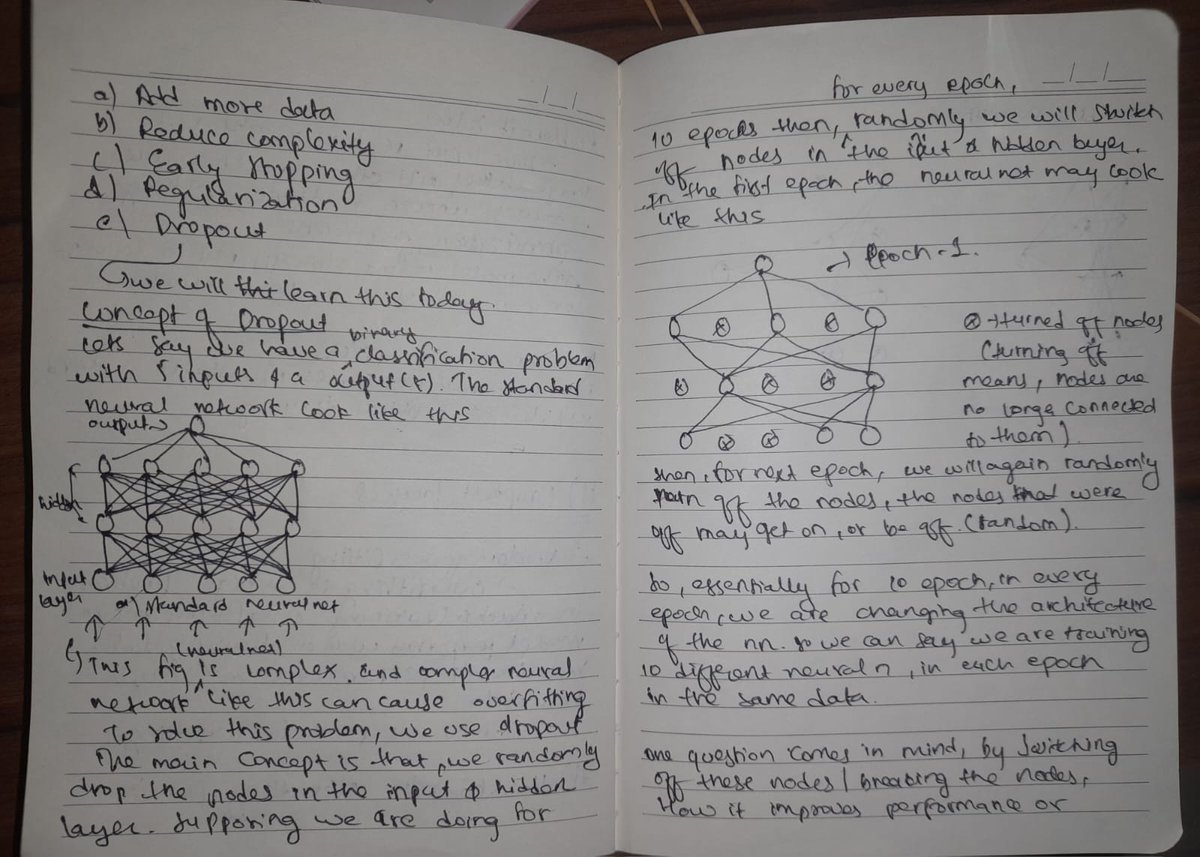 a) Add more data
b) Reduce complexity
c) Early stopping
d) Regularization
e) Dropout
we will learn this today.
Concept of Dropout
Lets say we have a binary classification problem
with 5 inputs & a output (r). The standard
neural network look like this
output
hidden
Input
layer
a) standard neural net
(neural net)
This fig is complex, and complex neural
network like this can cause overfitting
To solve this problem, we use dropout
The main concept is that, we randomly
drop the nodes in the input & hidden
layer. supposing we are doing for
for every epoch,
10 epochs then, randomly we will switch
off nodes in the input & hidden layer.
In the first epoch, the neural net may look
like this
Epoch-1.
turned off nodes
(turning off
means, nodes are
no longe connected
to them)
then, for next epoch, we will again randomly
turn off the nodes, the nodes that were
off may get on, or be off. (random).
So, essentially for 10 epoch, in every
epoch, we are changing the architecture
of the nn. so we can say we are training
10 different neural n, in each epoch
in the same data.
one question comes in mind, by switching
off these nodes / breaking the nodes,
How it improves performance or